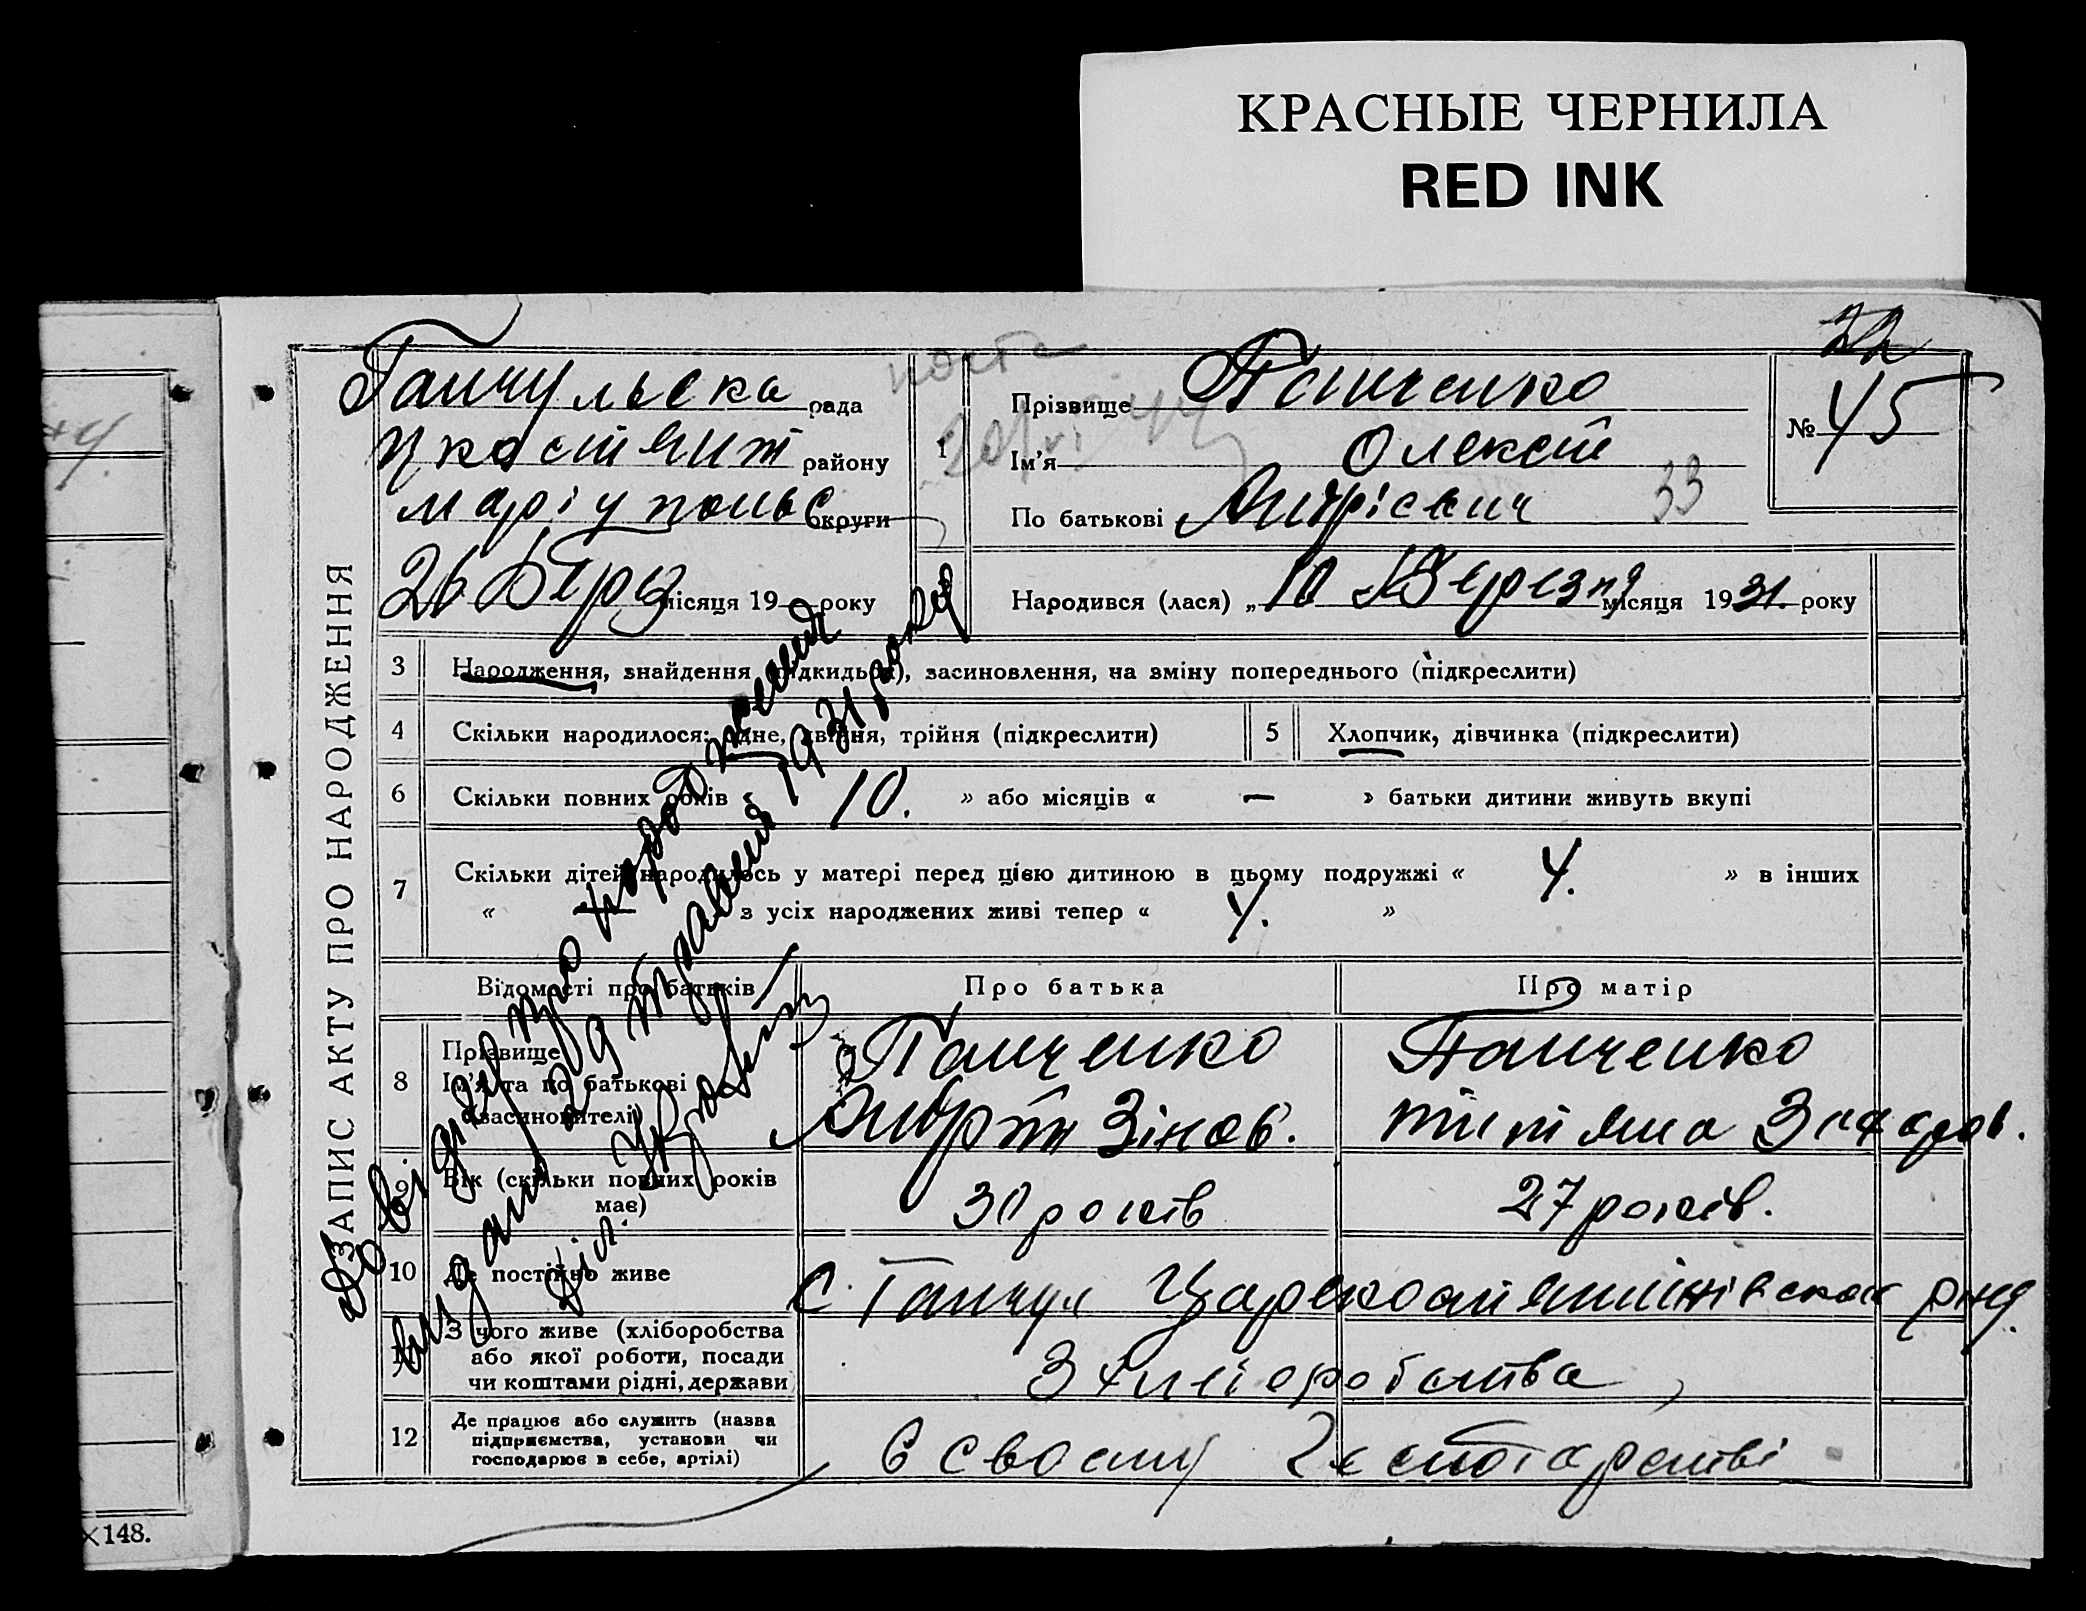 КРАСНЫЕ ЧЕРНИЛА
RED INK
ЗАПИС АКТУ ПРО НАРОДЖЕННЯ
Ганчульска рада
Цкостянт району
маріупольс округи
26 Берез місяця 19 року
1
Прізвище Панченко
Ім'я Олексій
По батькові Андрієвич 33
№ 45
Народився (лася) „ 10 Березня місяця 1931 року
3 Народження, знайдення (підкидька), засиновлення, на зміну попереднього (підкреслити)
4 Скільки народилося: одне, двійня, трійня (підкреслити)
5 Хлопчик, дівчинка (підкреслити)
6 Скільки повних років « 10. » або місяців « — » батьки дитини живуть вкупі
7 Скільки дітей народилось у матері перед цією дитиною в цьому подружжі « 4. » в інших
« — з усіх народжених живі тепер « 4. »
Відомості про батьків
Про батька
Про матір
8 Прізвище
Ім'я та по батькові
(засиновителі)
Панченко
Андрій Зінов.
Панченко
Титяна Захаров.
9 Вік (скільки повних років має)
30 років
27 років.
10 Де постійно живе
С. Ганчул Царекостянтинівской
11 З чого живе (хліборобства
або якої роботи, посади
чи коштами рідні, держави
З хліборобства
12 Де працює або служить (назва
підприємства, установи чи
господарює в себе, артілі)
в своему господарстві
про народження
видано 29 травня 1931 року
Діл.
×148.